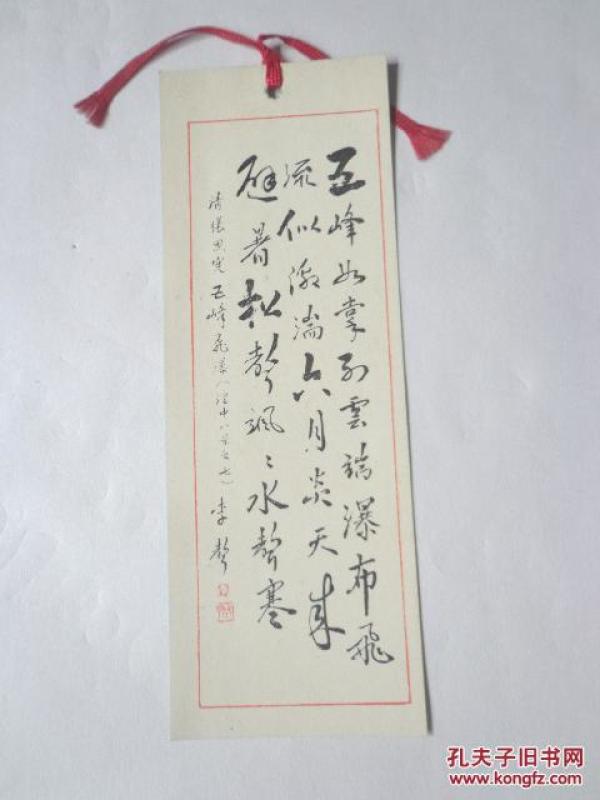 五峰如掌列雲端瀑布飛
流似激湍六月炎天來
避暑松聲颯〻水聲寒
清張思寬五峰飛瀑（湟中八景之七）李聲
孔夫子旧书网
www.kongfz.com